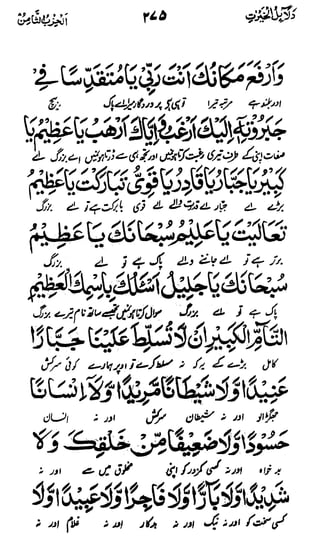 دلآئل الخیرت
٢٧٥
الحزب الثامن
وَارْفَعَ مَكَانُكَ اَنْتَ رَبِّیْ يَا مُتَقَدِّسًا فِیْ
اور بلند ہے مرتبہ تیرا تو ہی ہے پروردگار میرا اے پاک بیچ
جَبَرُوْتِهٖٓ اِلَيْكَ اَرْغَبُ وَاِيَّاكَ اَرْهَبُ يَا عَظِيْمُ يَا
صفات اپنی کے طرف تیری رغبت کرتا ہوں میں اور تجھ ہی سے ڈرتا ہوں میں اے بزرگ اے
كَبِيْرُ يَا جَبَّارُ يَا قَادِرُ يَا قَوِیُّ تَبَارَكْتَ يَا عَظِيْمُ
بڑے اے جبار اے قدرت والے اے قوی بابرکت ہے تو اے بزرگ
تَعَالَيْتَ يَا عَلِيْمُ سُبْحَانَكَ يَا عَظِيْمُ
برتر ہے تو اے جاننے والے پاک ہے تو اے بزرگ
سُبْحَانَكَ يَا جَلِيْلُ اَسْئَلُكَ بِاسْمِكَ الْعَظِيْمِ
پاک ہے تو اے بزرگ سوال کرتا ہوں میں تجھ سے ساتھ نام تیرے بزرگ
التَّآمِّ الْكَبِيْرِ اَنْ لَّا تُسَلِّطَ عَلَيْنَا جَبَّارًا
کامل بڑے کے یہ کہ نہ مسلط کرے تو اوپر ہمارے کوئی سرکش
عَنِيْدًا وَّلَا شَيْطَانًا مَّرِيْدًا وَّلَا اِنْسَانًا
جھگڑالو اور نہ شیطان سرکش اور نہ انسان
حَسُوْدًا وَّلَا ضَعِيْفًا مِّنْ خَلْقِكَ وَلَا
بد خواہ اور نہ کسی کمزور کو اپنی مخلوق میں سے اور نہ
شَدِيْدًا وَّلَا بَآرًّا وَّلَا فَاجِرًا وَّلَا عَبِيْدًا وَّلَا
کسی سخت کو اور نہ نیک اور نہ بدکار اور نہ غلام اور نہ